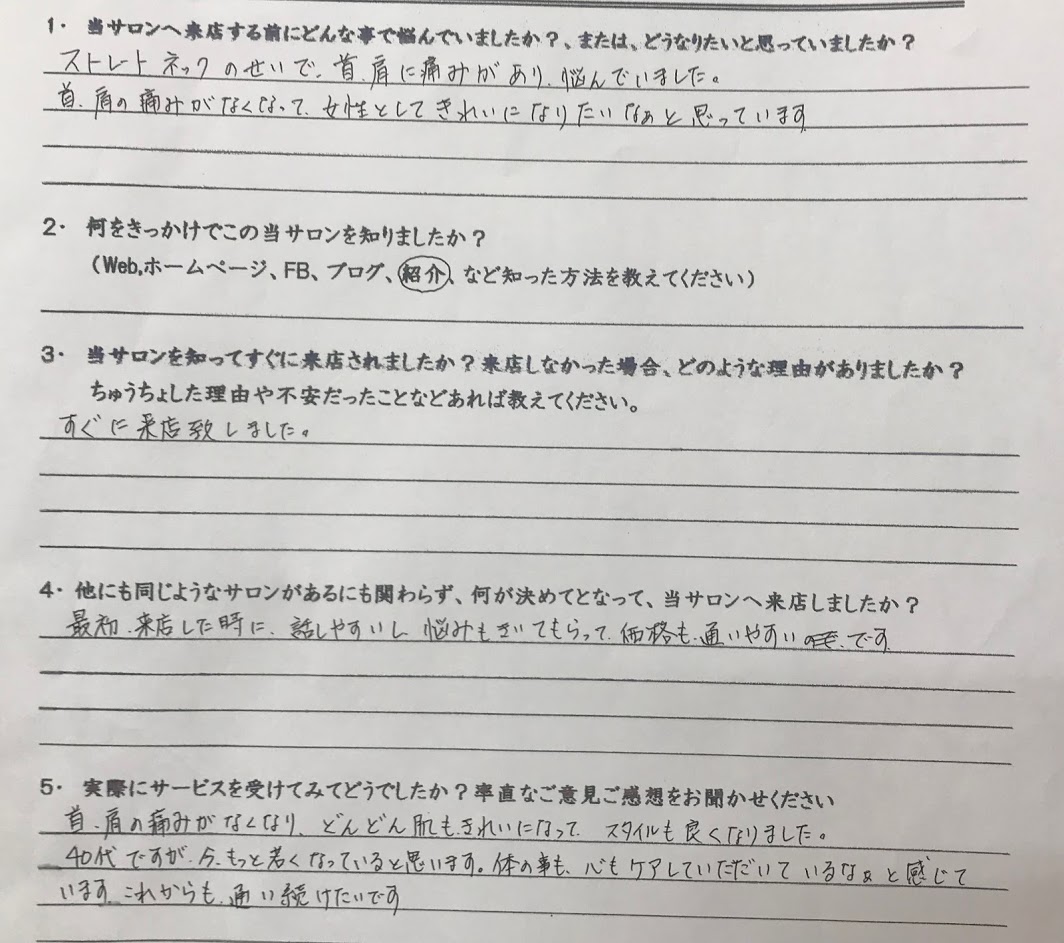 1・ 当サロンへ来店する前にどんな事で悩んでいましたか？、または、どうなりたいと思っていましたか？
ストレートネックのせいで、首、肩に痛みがあり、悩んでいました。
首、肩の痛みがなくなって、女性としてきれいになりたいなぁと思っています
2・ 何をきっかけでこの当サロンを知りましたか？
（Web,ホームページ、FB、ブログ、紹介、など知った方法を教えてください）
3・ 当サロンを知ってすぐに来店されましたか？来店しなかった場合、どのような理由がありましたか？
ちゅうちょした理由や不安だったことなどあれば教えてください。
すぐに来店致しました。
4・ 他にも同じようなサロンがあるにも関わらず、何が決めてとなって、当サロンへ来店しましたか？
最初、来店した時に、話しやすいし、悩みもきいてもらって、価格も、通いやすい です
5・ 実際にサービスを受けてみてどうでしたか？率直なご意見ご感想をお聞かせください
首、肩の痛みがなくなり、どんどん肌もきれいになって、スタイルも良くなりました。
40代ですが、今、もっと若くなっていると思います。体の事も、心もケアしていただいているなぁと感じて
います。これからも、通い続けたいです